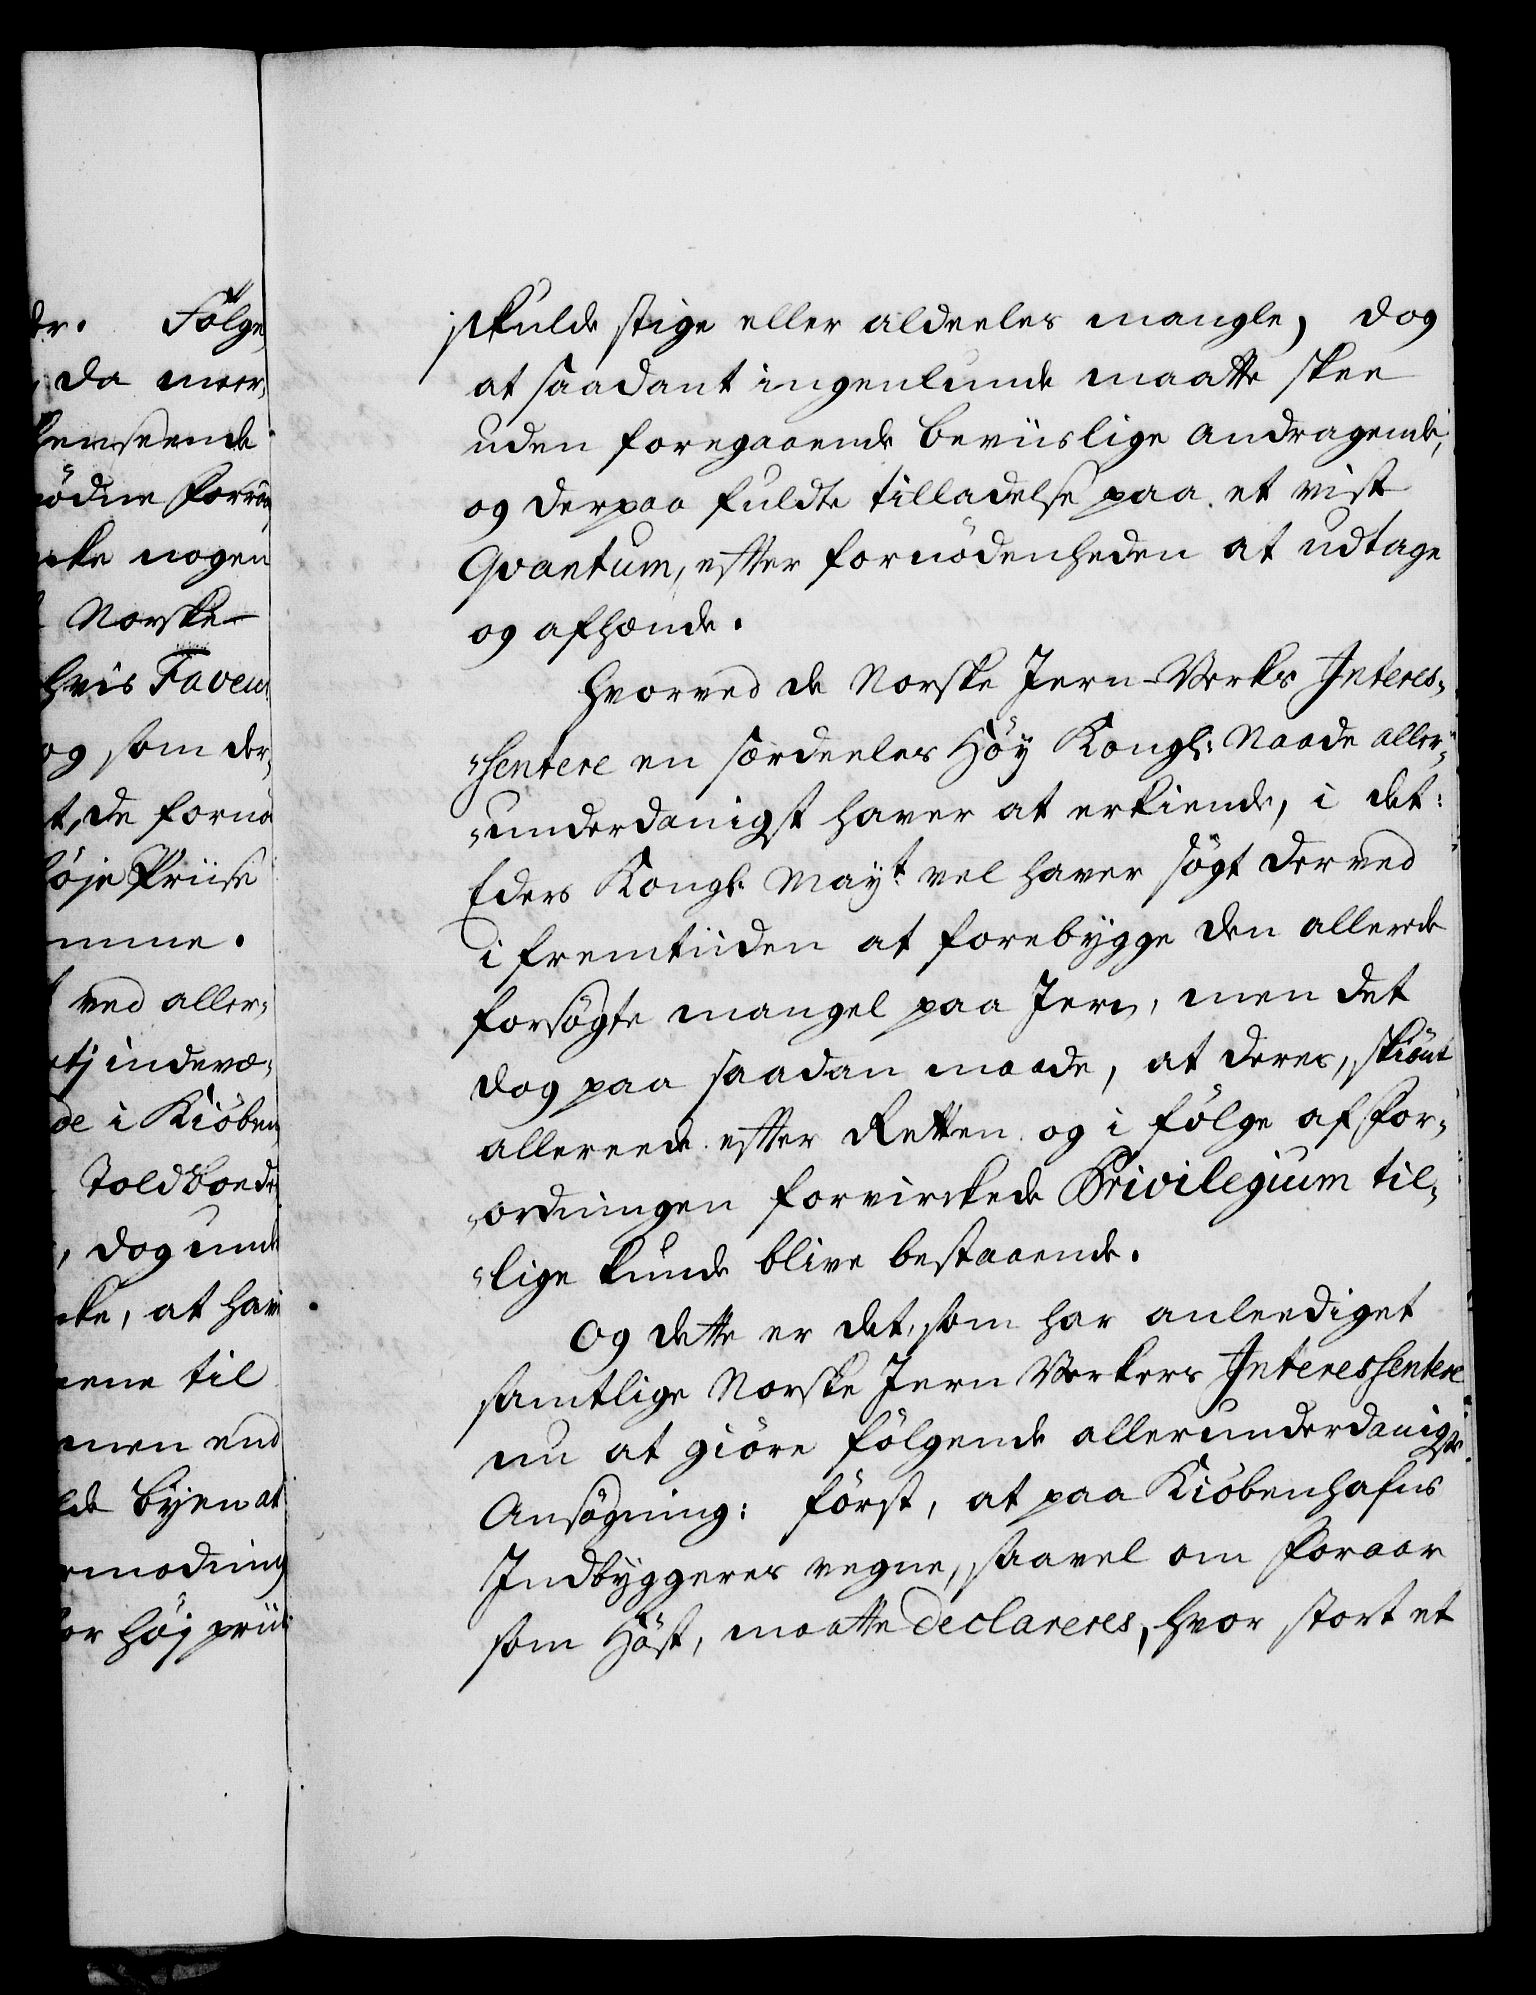 dr. Følge
da meer,
henseende
nødne Forraa
cke nogen
Norske
hvis Faveur
og som der,
t, de fornø
høje Priise
mme.
ved aller,
tj indevæ,
de i Kiøben
Toldboede
, dog und
cke, at hav
nene til
men end
lde Byen at
rmodning
or høj priis
skulde stige eller aldeeles mangle, dog
at saadant ingenlunde maatte skee
uden foregaaende beviislige andragende,
og derpaa fuldte tilladelse paa et vist
Qvantum, efter fornödenheden at udtage
og afhænde.
Hvorved de Norske Jern-Verks Interes„
„sentere en særdeeles Höy Kongl: Naade aller„
„underdanigst haver at erkiende, i det:
Eders Kongl: Mayt: vel haver sögt derved
i fremtiiden at forebygge den allerede
forsögte mangel paa Jern, men det
dog paa saadan maade, at deres, skiönt
allereede efter Retten og i fölge af For„
„ordningen forvirckede Privilegium til„
„lige kunde blive bestaaende.
Og dette er det, som har anleediget
samtlige Norske Jern Verkers Interessentere
nu at giöre fölgende allerunderdanigste
Ansögning: först, at paa Kiöbenhafns
Indbyggeres vegne, saavel om Foraar
som Höst, maatte declareres, hvor stort et